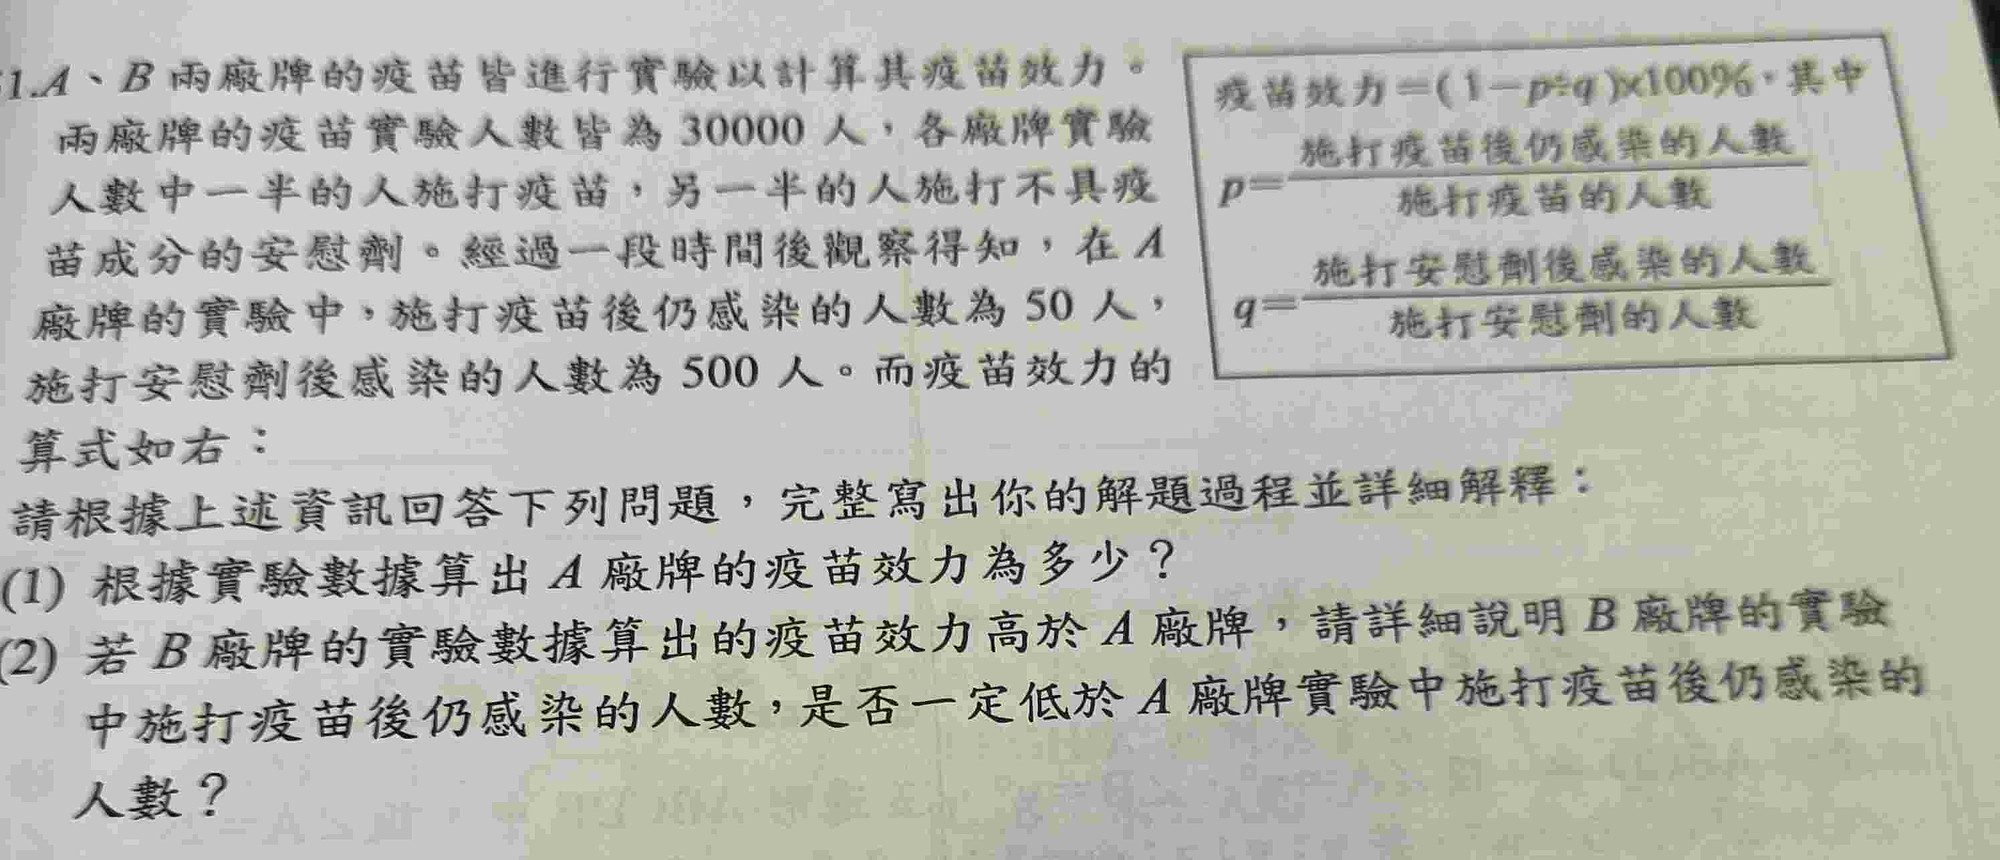 1.A、B 兩廠牌的疫苗皆進行實驗以計算其疫苗效力。
兩廠牌的疫苗實驗人數皆為 30000 人，各廠牌實驗
人數中一半的人施打疫苗，另一半的人施打不具疫
苗成分的安慰劑。經過一段時間後觀察得知，在 A
廠牌的實驗中，施打疫苗後仍感染的人數為 50 人，
施打安慰劑後感染的人數為 500 人。而疫苗效力的
算式如右：
疫苗效力=(1-p÷q)×100%，其中
p=施打疫苗後仍感染的人數/施打疫苗的人數
q=施打安慰劑後感染的人數/施打安慰劑的人數
請根據上述資訊回答下列問題，完整寫出你的解題過程並詳細解釋：
(1) 根據實驗數據算出 A 廠牌的疫苗效力為多少？
(2) 若 B 廠牌的實驗數據算出的疫苗效力高於 A 廠牌，請詳細說明 B 廠牌的實驗
中施打疫苗後仍感染的人數，是否一定低於 A 廠牌實驗中施打疫苗後仍感染的
人數？